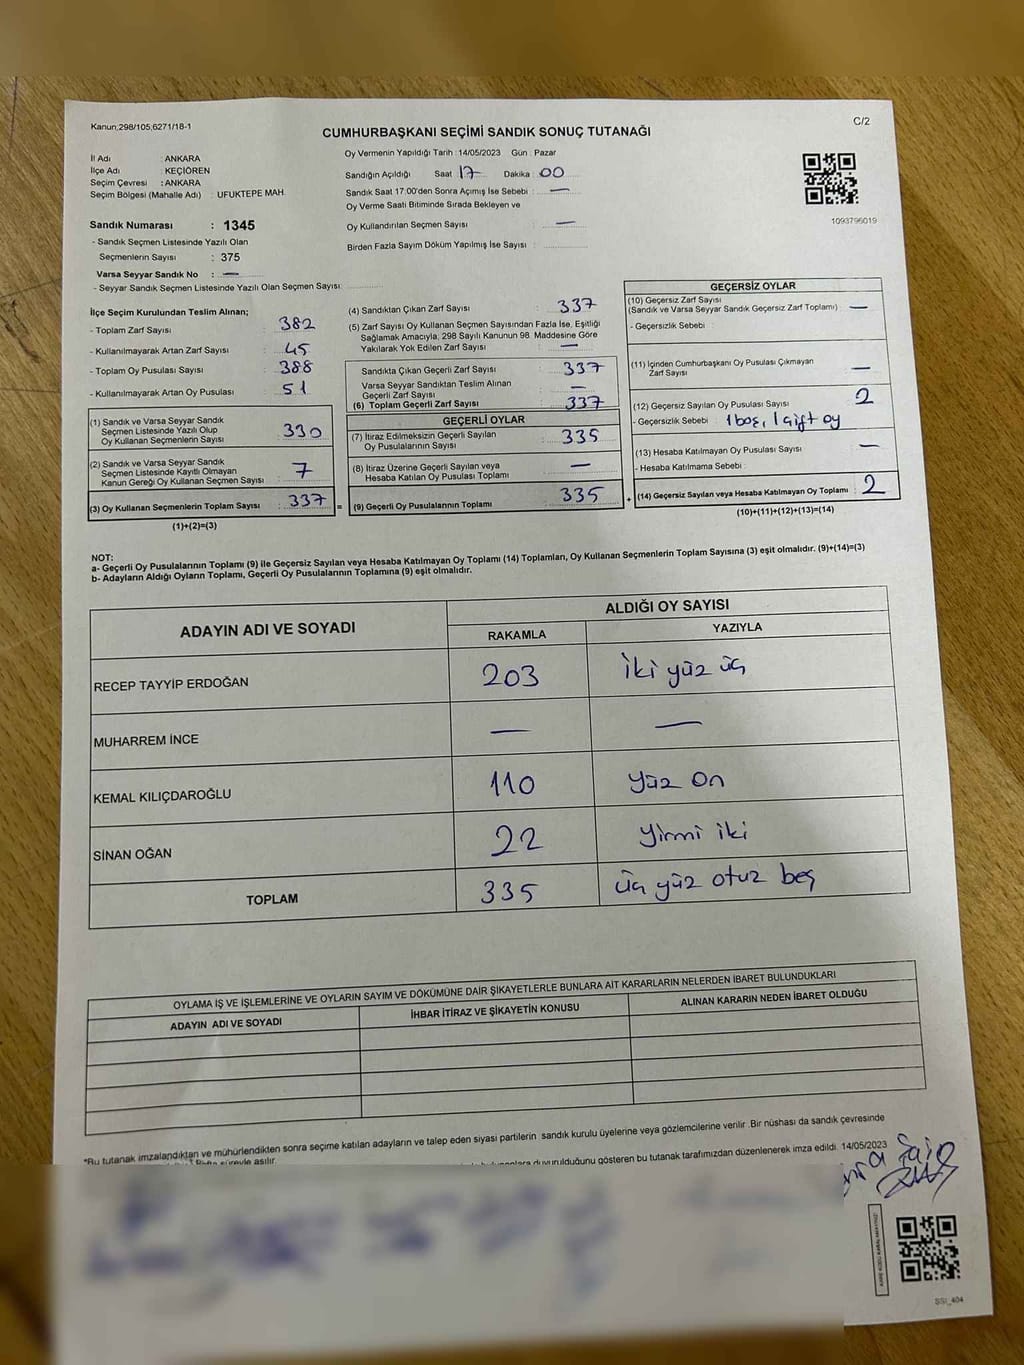 Kanun;298/105;6271/18-1
C/2
CUMHURBAŞKANI SEÇİMİ SANDIK SONUÇ TUTANAĞI
İl Adı : ANKARA
İlçe Adı : KEÇİÖREN
Seçim Çevresi : ANKARA
Seçim Bölgesi (Mahalle Adı) : UFUKTEPE MAH.
Sandık Numarası : 1345
- Sandık Seçmen Listesinde Yazılı Olan
Seçmenlerin Sayısı : 375
Varsa Seyyar Sandık No : —
- Seyyar Sandık Seçmen Listesinde Yazılı Olan Seçmen Sayısı:
Oy Vermenin Yapıldığı Tarih : 14/05/2023 Gün : Pazar
Sandığın Açıldığı Saat 17 Dakika : 00
Sandık Saat 17:00'den Sonra Açımış İse Sebebi : —
Oy Verme Saati Bitiminde Sırada Bekleyen ve
Oy Kullandırılan Seçmen Sayısı : —
Birden Fazla Sayım Döküm Yapılmış İse Sayısı :
1093796019
İlçe Seçim Kurulundan Teslim Alınan;
- Toplam Zarf Sayısı : 382
- Kullanılmayarak Artan Zarf Sayısı : 45
- Toplam Oy Pusulası Sayısı : 388
- Kullanılmayarak Artan Oy Pusulası : 51
(1) Sandık ve Varsa Seyyar Sandık
Seçmen Listesinde Yazılı Olup
Oy Kullanan Seçmenlerin Sayısı : 330
(2) Sandık ve Varsa Seyyar Sandık
Seçmen Listesinde Kayıtlı Olmayan
Kanun Gereği Oy Kullanan Seçmen Sayısı : 7
(3) Oy Kullanan Seçmenlerin Toplam Sayısı : 337
(1)+(2)=(3)
(4) Sandıktan Çıkan Zarf Sayısı : 337
(5) Zarf Sayısı Oy Kullanan Seçmen Sayısından Fazla İse, Eşitliği
Sağlamak Amacıyla; 298 Sayılı Kanunun 98. Maddesine Göre
Yakılarak Yok Edilen Zarf Sayısı : —
Sandıkta Çıkan Geçerli Zarf Sayısı : 337
Varsa Seyyar Sandıktan Teslim Alınan
Geçerli Zarf Sayısı : —
(6) Toplam Geçerli Zarf Sayısı : 337
GEÇERLİ OYLAR
(7) İtiraz Edilmeksizin Geçerli Sayılan
Oy Pusulalarının Sayısı : 335
(8) İtiraz Üzerine Geçerli Sayılan veya
Hesaba Katılan Oy Pusulası Toplamı : —
= (9) Geçerli Oy Pusulalarının Toplamı : 335
GEÇERSİZ OYLAR
(10) Geçersiz Zarf Sayısı
(Sandık ve Varsa Seyyar Sandık Geçersiz Zarf Toplamı) : —
- Geçersizlik Sebebi :
(11) İçinden Cumhurbaşkanı Oy Pusulası Çıkmayan
Zarf Sayısı : —
(12) Geçersiz Sayılan Oy Pusulası Sayısı : 2
- Geçersizlik Sebebi : 1 boş, 1 çift oy
(13) Hesaba Katılmayan Oy Pusulası Sayısı : —
- Hesaba Katılmama Sebebi :
+ (14) Geçersiz Sayılan veya Hesaba Katılmayan Oy Toplamı : 2
(10)+(11)+(12)+(13)=(14)
NOT:
a- Geçerli Oy Pusulalarının Toplamı (9) ile Geçersiz Sayılan veya Hesaba Katılmayan Oy Toplamı (14) Toplamları, Oy Kullanan Seçmenlerin Toplam Sayısına (3) eşit olmalıdır. (9)+(14)=(3)
b- Adayların Aldığı Oyların Toplamı, Geçerli Oy Pusulalarının Toplamına (9) eşit olmalıdır.
ADAYIN ADI VE SOYADI
ALDIĞI OY SAYISI
RAKAMLA YAZIYLA
RECEP TAYYİP ERDOĞAN 203 İki yüz üç
MUHARREM İNCE — —
KEMAL KILIÇDAROĞLU 110 Yüz On
SİNAN OĞAN 22 Yirmi iki
TOPLAM 335 Üç yüz otuz beş
OYLAMA İŞ VE İŞLEMLERİNE VE OYLARIN SAYIM VE DÖKÜMÜNE DAİR ŞİKAYETLERLE BUNLARA AİT KARARLARIN NELERDEN İBARET BULUNDUKLARI
ADAYIN ADI VE SOYADI İHBAR İTİRAZ VE ŞİKAYETİN KONUSU ALINAN KARARIN NEDEN İBARET OLDUĞU
*Bu tutanak imzalandıktan ve mühürlendikten sonra seçime katılan adayların ve talep eden siyasi partilerin sandık kurulu üyelerine veya gözlemcilerine verilir. Bir nüshası da sandık çevresinde
süreyle asılır. duyurulduğunu gösteren bu tutanak tarafımızdan düzenlenerek imza edildi. 14/05/2023
SSİ_404